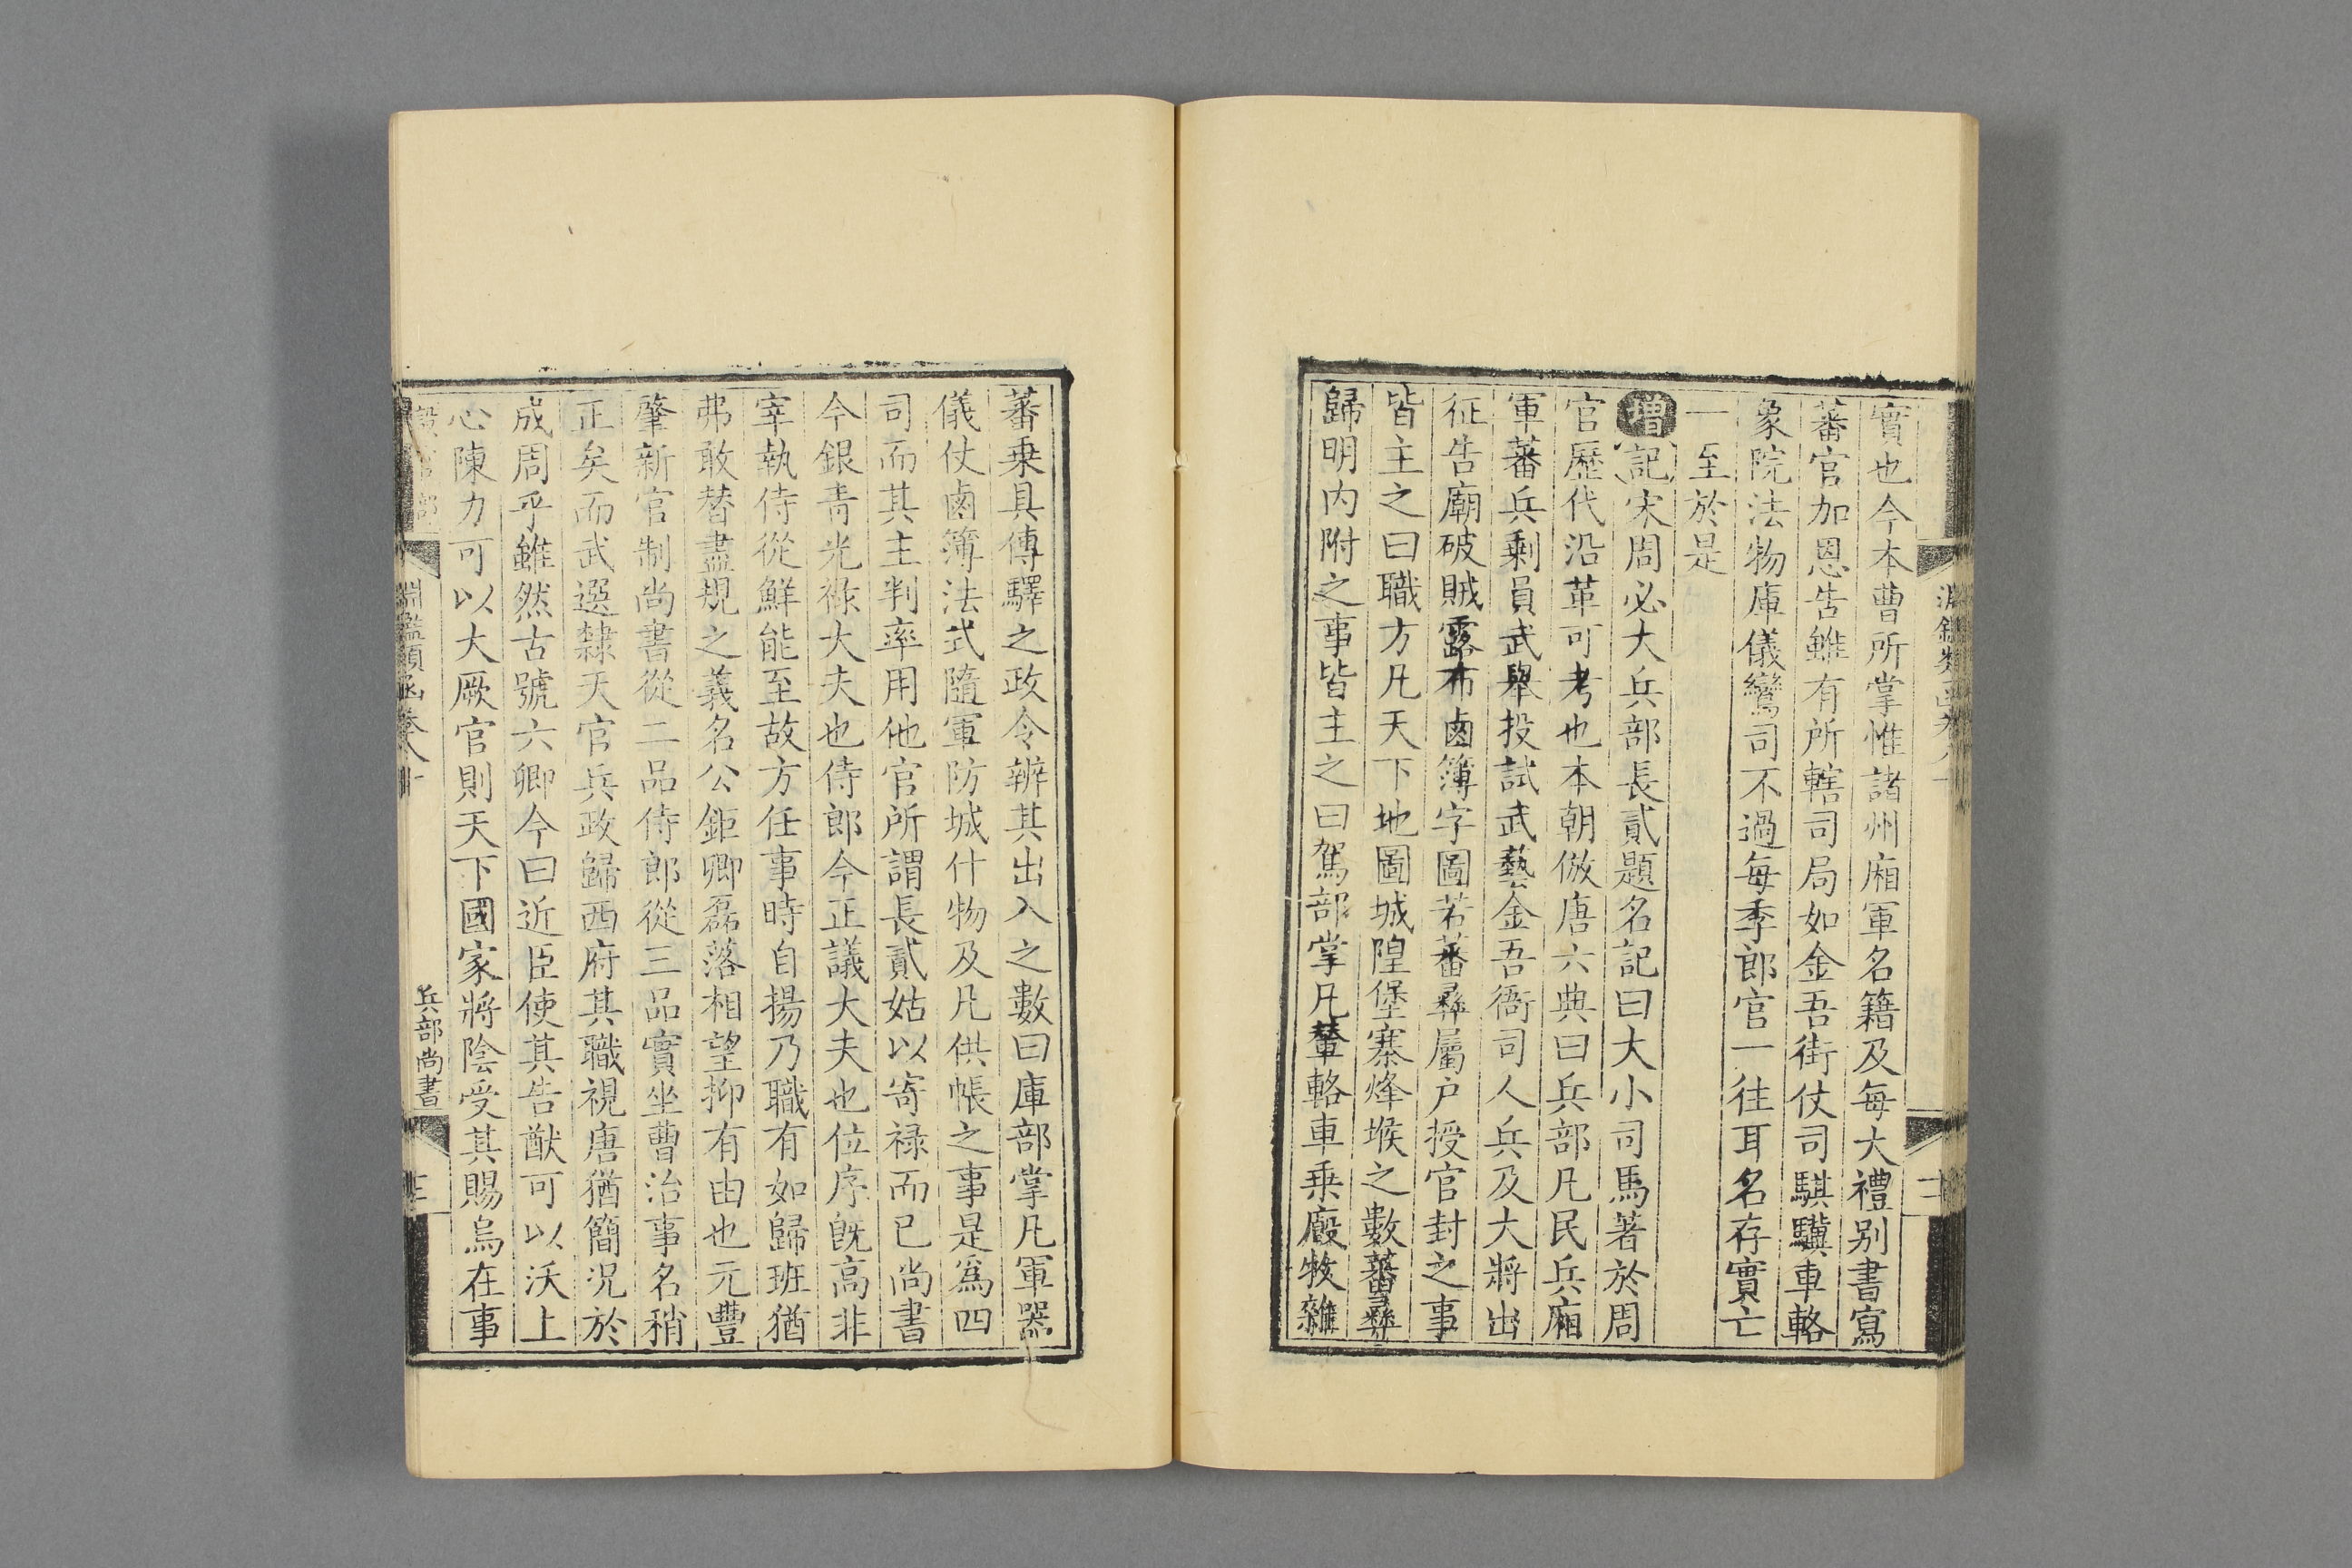 實也今本曹所掌惟諸州廂軍名籍及每大禮别書寫
蕃官加恩告雖有所轄司局如金吾街仗司騏驥車輅
象院法物庫儀鸞司不過每季郎官一往耳名存實亡
一至於是
增記宋周必大兵部長貳題名記曰大小司馬著於周
官歷代沿革可考也本朝倣唐六典曰兵部凡民兵廂
軍蕃兵剩員武舉投試武藝金吾衙司人兵及大將出
征告廟破賊露布鹵簿字圖若蕃彞屬户授官封之事
皆主之曰職方凡天下地圖城隍堡寨烽堠之數蕃彞
歸明内附之事皆主之曰駕部掌凡輦輅車乗廐牧雜
蕃乗具傳驛之政令辨其出入之數曰庫部掌凡軍器
儀仗鹵簿法式隨軍防城什物及凡供帳之事是爲四
司而其主判率用他官所謂長貳姑以寄禄而已尚書
今銀青光禄大夫也侍郎今正議大夫也位序旣高非
宰執侍從鮮能至故方任事時自揚乃職有如歸班猶
弗敢替盡規之義名公鉅卿磊落相望抑有由也元豐
肇新官制尚書從二品侍郎從三品實坐曹治事名稍
正矣而武選隸天官兵政歸西府其職視唐猶簡况於
成周乎雖然古號六卿今曰近臣使其告猷可以沃上
心陳力可以大厥官則天下國家將陰受其賜烏在事
淵鑑類函卷八十
兵部尚書